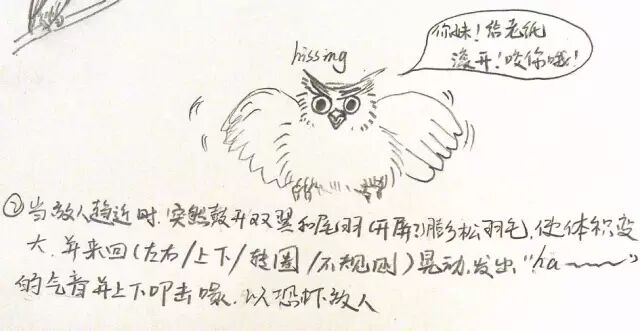 你妹！给老纸
滚开！咬你哦！
hissing
②当敌人趋近时，突然鼓开双翼和尾羽(开屏?)膨松羽毛，使体积变
大，并来回(左右/上下/转圈/不规则)晃动，发出"ha~~~"
的气音并上下叩击喙，以恐吓敌人